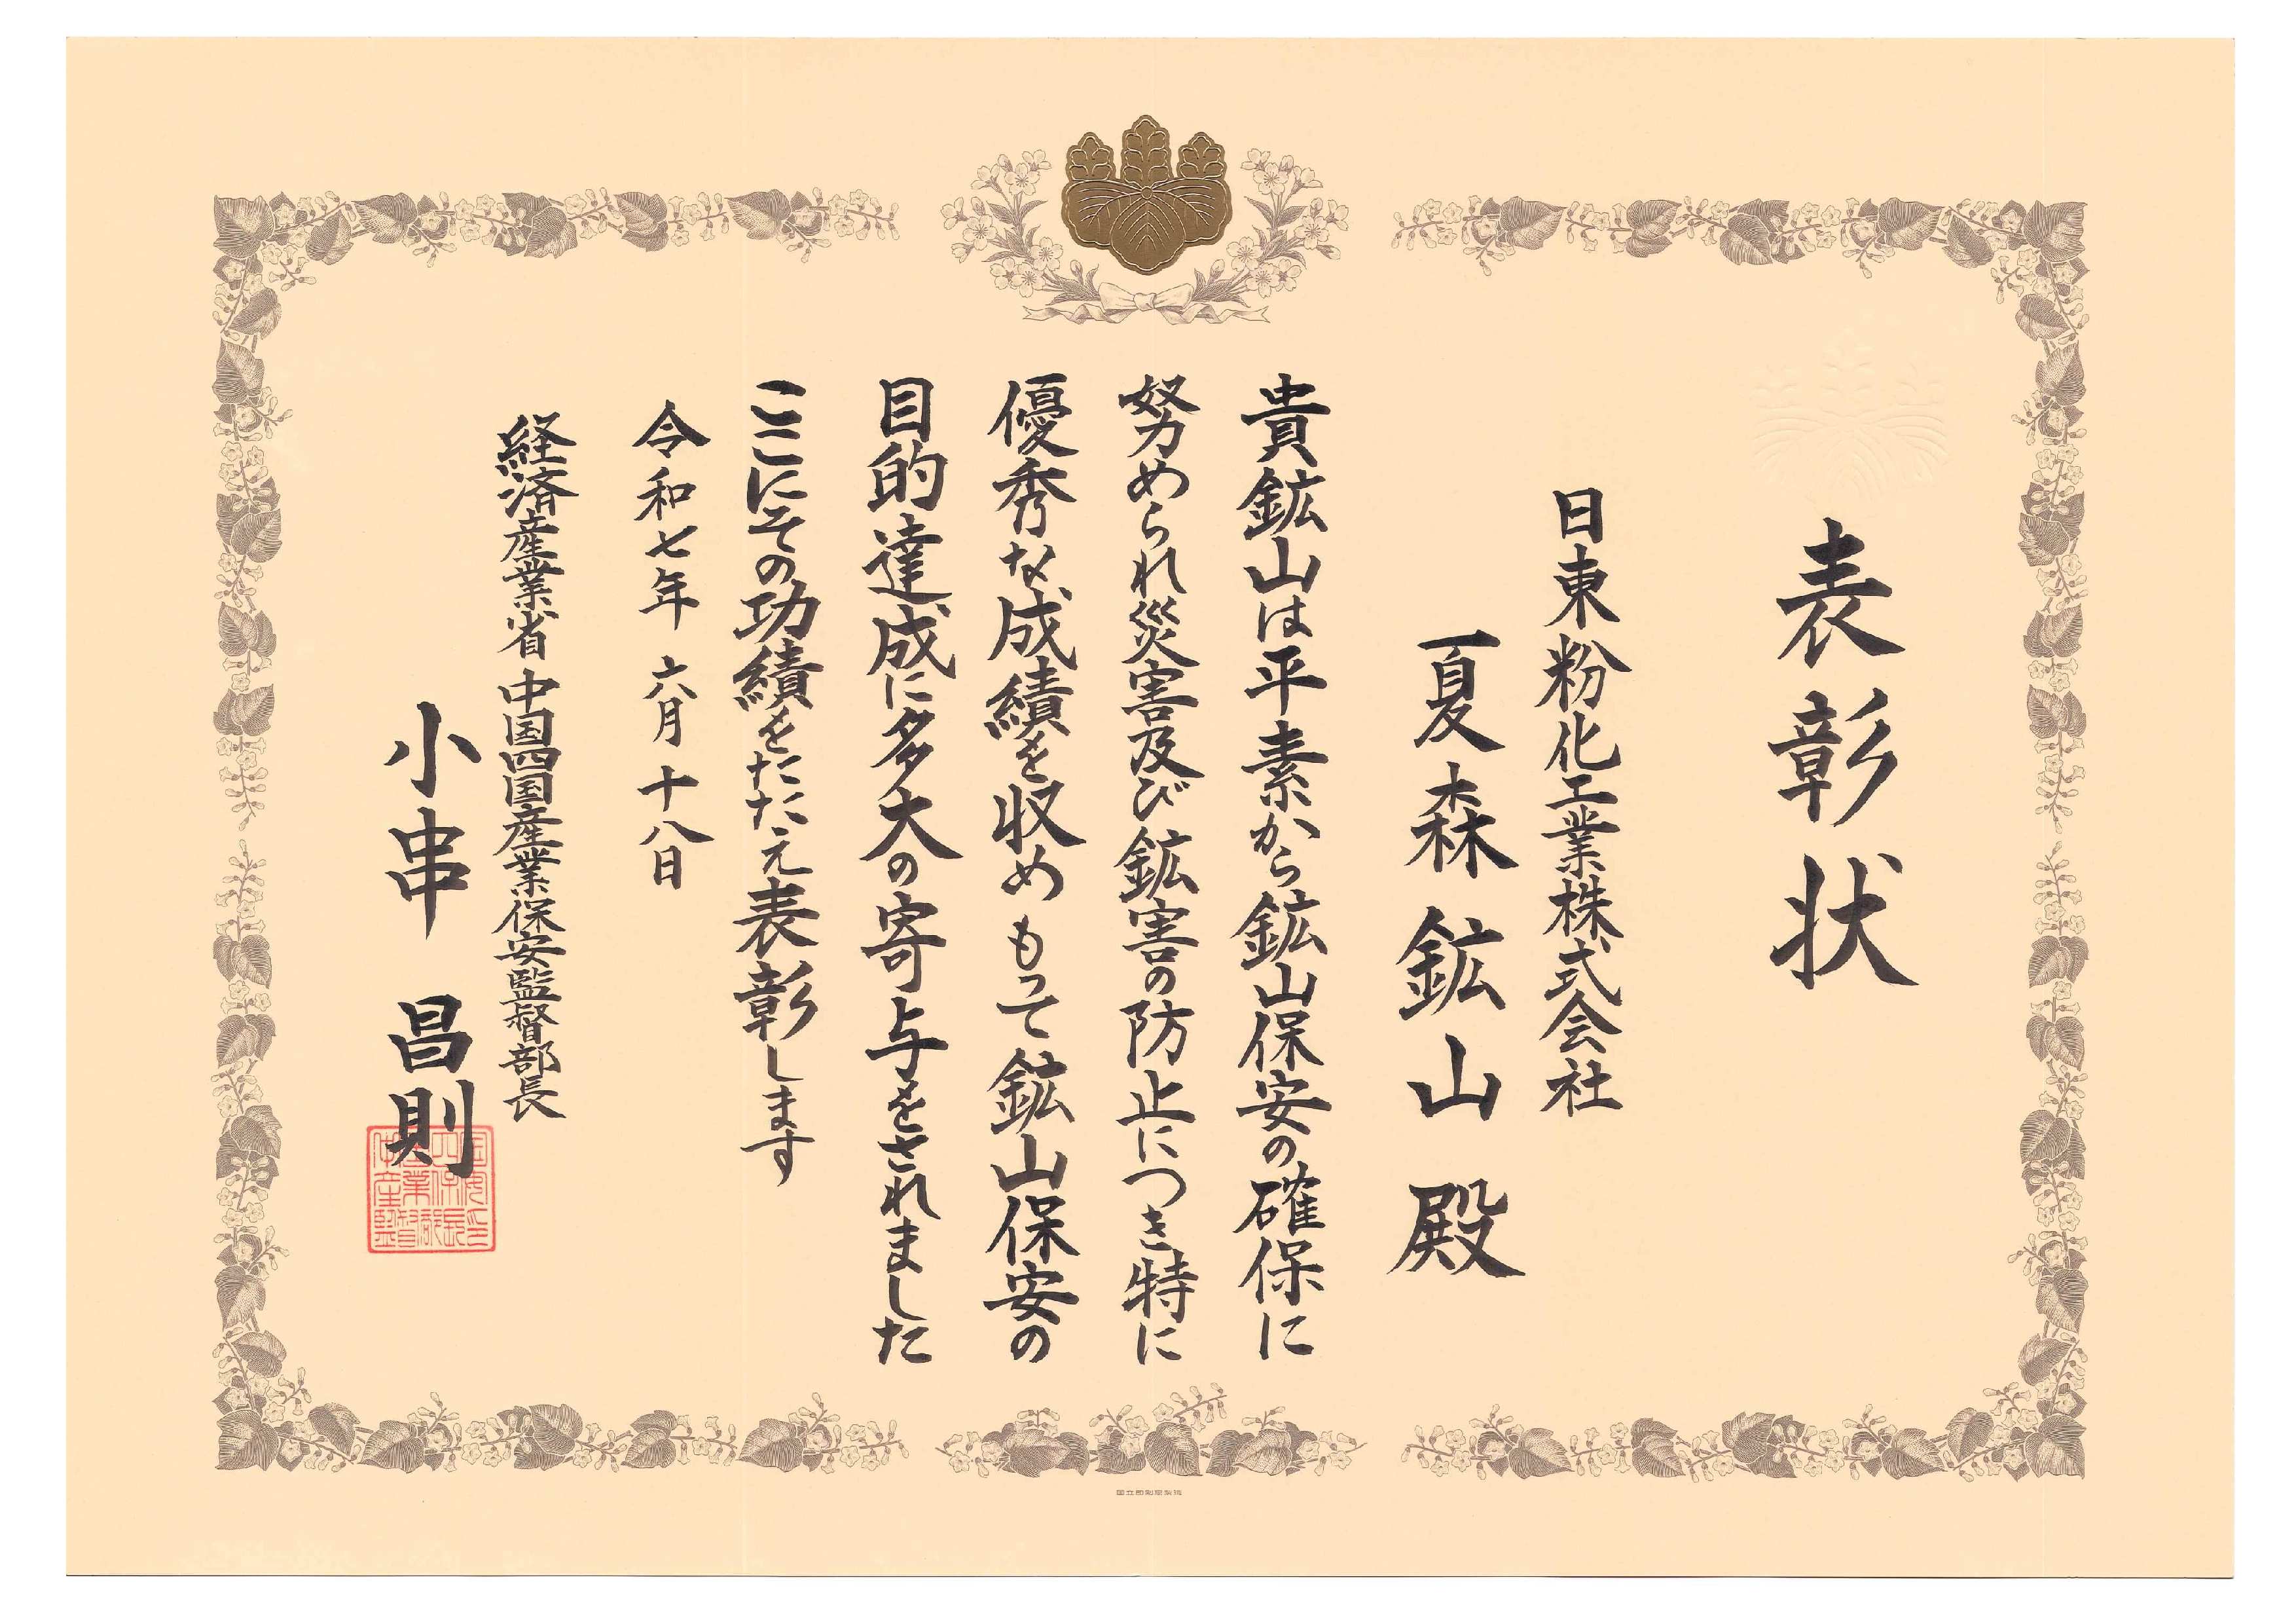 表彰状
日東粉化工業株式会社
夏森鉱山殿
貴鉱山は平素から鉱山保安の確保に
努められ災害及び鉱害の防止につき特に
優秀な成績を収めもって鉱山保安の
目的達成に多大の寄与をされました
ここにその功績をたたえ表彰します
令和七年六月十八日
経済産業省中国四国産業保安監督部長
小串昌則
国立印刷局製造